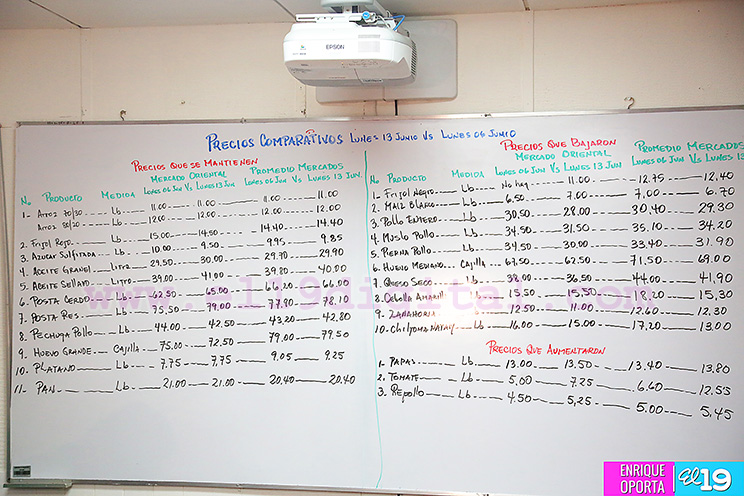 EPSON
PRECIOS COMPARATIVOS LUNES 13 JUNIO VS LUNES 06 JUNIO
PRECIOS QUE SE MANTIENEN
MERCADO ORIENTAL PROMEDIO MERCADOS
No PRODUCTO MEDIDA LUNES 06 JUN VS LUNES 13 JUN LUNES 06 JUN VS LUNES 13 JUN.
1- Arroz 70/30 Lb 11.00 11.00 11.00 11.00
Arroz 80/20 Lb 12.00 12.00 12.00 12.00
2- Frijol Rojo Lb 15.00 14.50 14.40 14.40
3 AZUCAR SULFITADA Lb 10.00 9.50 9.95 9.85
4 ACEITE GRANEL Litro 29.50 30.00 29.70 29.90
5 ACEITE SELLADO Litro 39.00 41.00 39.80 40.00
6 POSTA CERDO Lb 62.50 65.00 66.20 66.00
7 POSTA RES Lb 75.50 79.00 77.90 78.10
8- PECHUGA POLLO Lb 44.00 42.50 43.20 42.80
9 HUEVO GRANDE Cajilla 75.00 72.50 79.00 77.50
10. PLATANO Lb 7.75 7.75 9.05 9.25
11- PAN Lb 21.00 21.00 20.40 20.40
PRECIOS QUE BAJARON
MERCADO ORIENTAL PROMEDIO MERCADOS
No PRODUCTO MEDIDA LUNES 06 JUN VS LUNES 13 JUN LUNES 06 JUN VS LUNES 13
1- Frijol Negro Lb No hay 11.00 12.75 12.40
2- MAIZ BLANCO Lb 6.50 7.00 7.00 6.70
3. Pollo ENTERO Lb 30.50 28.00 30.40 29.30
4. MUSLO POLLO Lb 34.50 31.50 35.10 34.20
5. PIERNA POLLO Lb 34.50 30.00 33.40 31.90
6. HUEVO MEDIANO Cajilla 67.50 62.50 71.50 69.00
7. QUESO SECO Lb 38.00 36.50 44.00 41.90
8 Cebolla AMARILLA Lb 15.50 15.50 18.20 15.30
9. ZANAHORIA Lb 12.50 11.00 12.60 12.30
10. Chiltoma Lb 16.00 15.00 17.20 13.00
PRECIOS QUE AUMENTARON
1- PAPAS Lb 13.00 13.50 13.40 13.80
2. TOMATE Lb 5.00 7.25 6.60 12.55
3. Repollo Lb 4.50 5.25 5.00 5.45
ENRIQUE
OPORTA
El 19